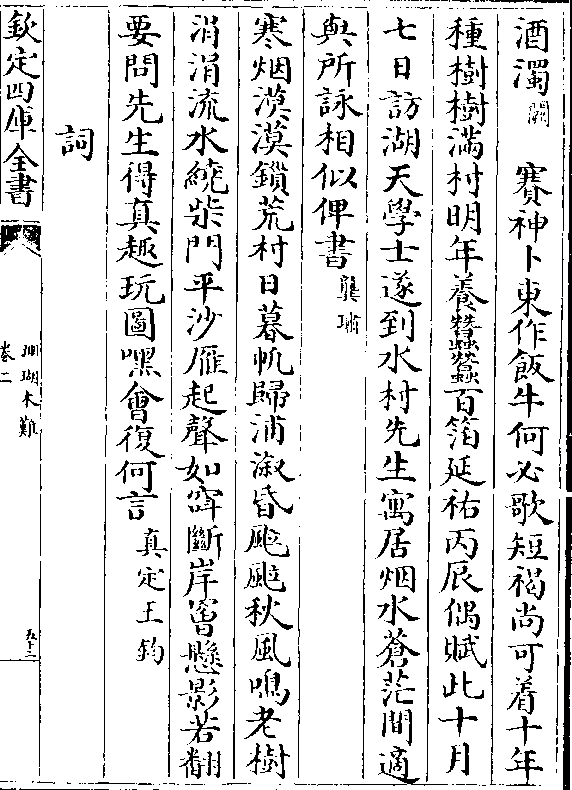 酒濁闕　賽神卜東作飯牛何必歌短褐尚可着十年
種樹樹滿村明年養蠶蠶百箔延祐丙辰偶賦此十月
七日訪湖天學士遂到水村先生寓居烟水蒼茫間適
與所詠相似俾書龔璛
寒烟漠漠鎖荒村日暮帆歸浦溆昏颭颭秋風鳴老樹
涓涓流水繞柴門平沙雁起聲如窄斷岸罾懸影若翻
要問先生得真趣玩圖嘿會復何言真定王鈞
詞
欽定四庫全書
珊瑚木難
卷二
五十二